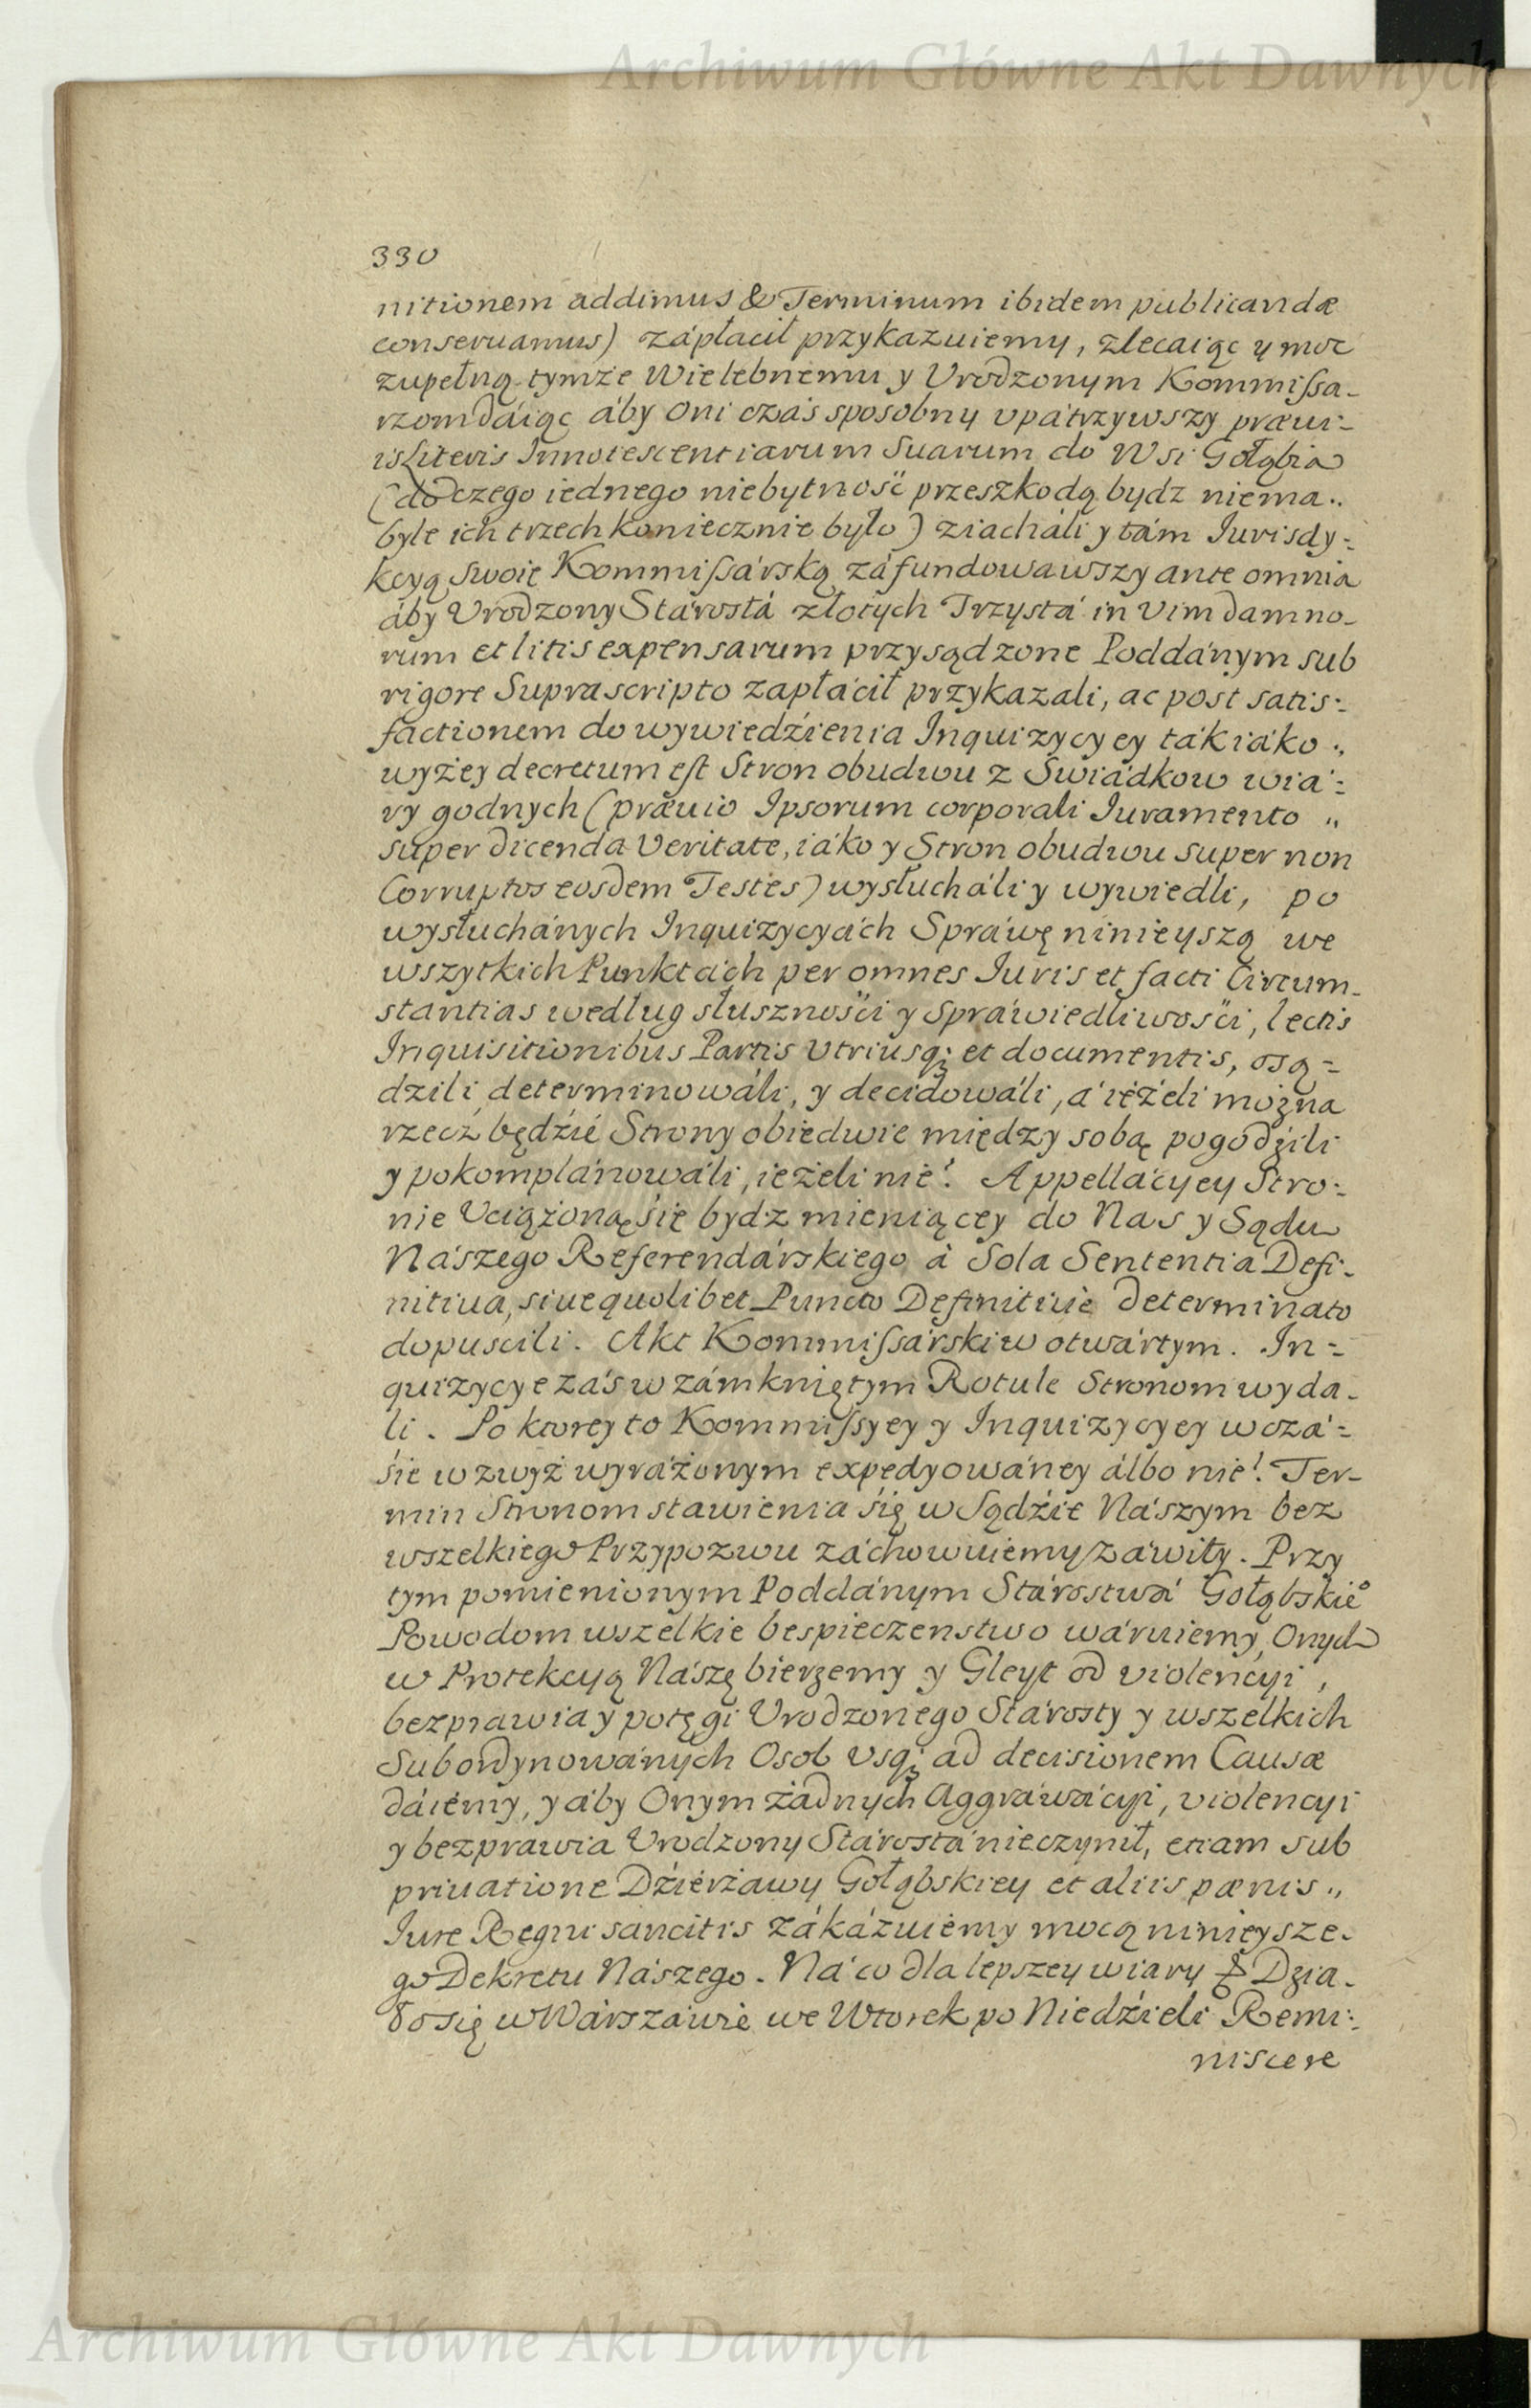 Archiwum Główne Akt Dawnych
330
nitionem addimus & Terminum ibidem publicandæ
conseruamus) zápłacił przykazuiemy, zlecaiąc y moc
zupełną tymże Wielebnemu y Vrodzonym Kommißa-
rzom dáiąc áby oni czás sposobny vpátrzywszy præui-
is Literis Innotescentiarum Suarum do Wsi Gołąbia
(do czego iednego niebytność przeszkodą bydz niema..
byle ich trzech koniecznie było) ziacháli y tám Iurisdy=
kcyą Swoię Kommißárską záfundowawszy ante omnia
áby Vrodzony Stárostá złotych Trzystá in Vim damno-
rum et litis expensarum przysądzone Poddánym sub
rigore Suprascripto zapłácił przykazali, ac post satis=
factionem do wywiedźienia Inquizycyey ták iáko.,
wyżey decretum est Stron obudwu z Swiádkow wiá=
ry godnych (præuio Ipsorum corporali Iuramento „
super dicenda Veritate, iáko y Stron obudwu super non
Corruptos eosdem Testes) wysłucháli y wywiedli, po
wysłuchánych Inquizycyách Spráwę ninieyszą we
wszytkich Punktách per omnes Iuris et facti Circum-
stantias według słusznośći y Spráwiedliwośći, lectis
Inquisitionibus Partis Vtriusq; et documentis, osą=
dzili, determinowáli, y decidowáli, á ieżeli można
rzecz będźie Strony obiedwie między sobą pogodźili
y pokomplánowáli, ieżeli nie! Appellácyey Stro=
nie Vciążoną się bydz mieniącey do Nas y Sądu
Nászego Referendárskiego à Sola Sententia Defi-
nitiua, siue quolibet Puncto Definitiuè determinato
dopuscili. Akt Kommißárski w otwártym. In=
quizycye zás w zámkniętym Rotule Stronom wyda-
li. Po ktorey to Kommißyey y Inquizycyey w czá=
śie wzwyż wyráżonym expedyowáney álbo nie! Ter-
min Stronom stawienia się w Sądźie Nászym bez
wszelkiego Przypozwu záchowuiemy záwity. Przy
tym pomienionym Poddánym Stárostwá Gołąbskiego
Powodom wszelkie bespieczenstwo wáruiemy, Onych
w Protekcyą Nászę bierzemy y Gleyt od violencyi,
bezprawia y potęgi Vrodzonego Stárosty y wszelkich
Subordynowánych Osob Vsq; ad decisionem Causæ
dáiemy, y áby Onym żadnych Aggráwácyi, violencyi
y bezprawia Vrodzony Stárostá nieczynił, etiam sub
priuatione Dźierżawy Gołąbskiey et aliis pænis „
Iure Regni sancitis zákázuiemy mocą ninieysze-
go Dekretu Nászego. Ná co dla lepszey wiary Dzia-
ło się w Wárszáwie we Wtorek po Niedźieli Remi=
niscere
Archiwum Główne Akt Dawnych